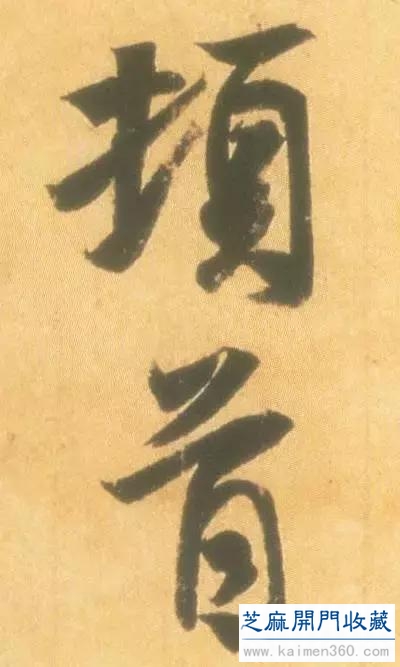 頓
首
芝麻開門收藏
www.kaimen360.com